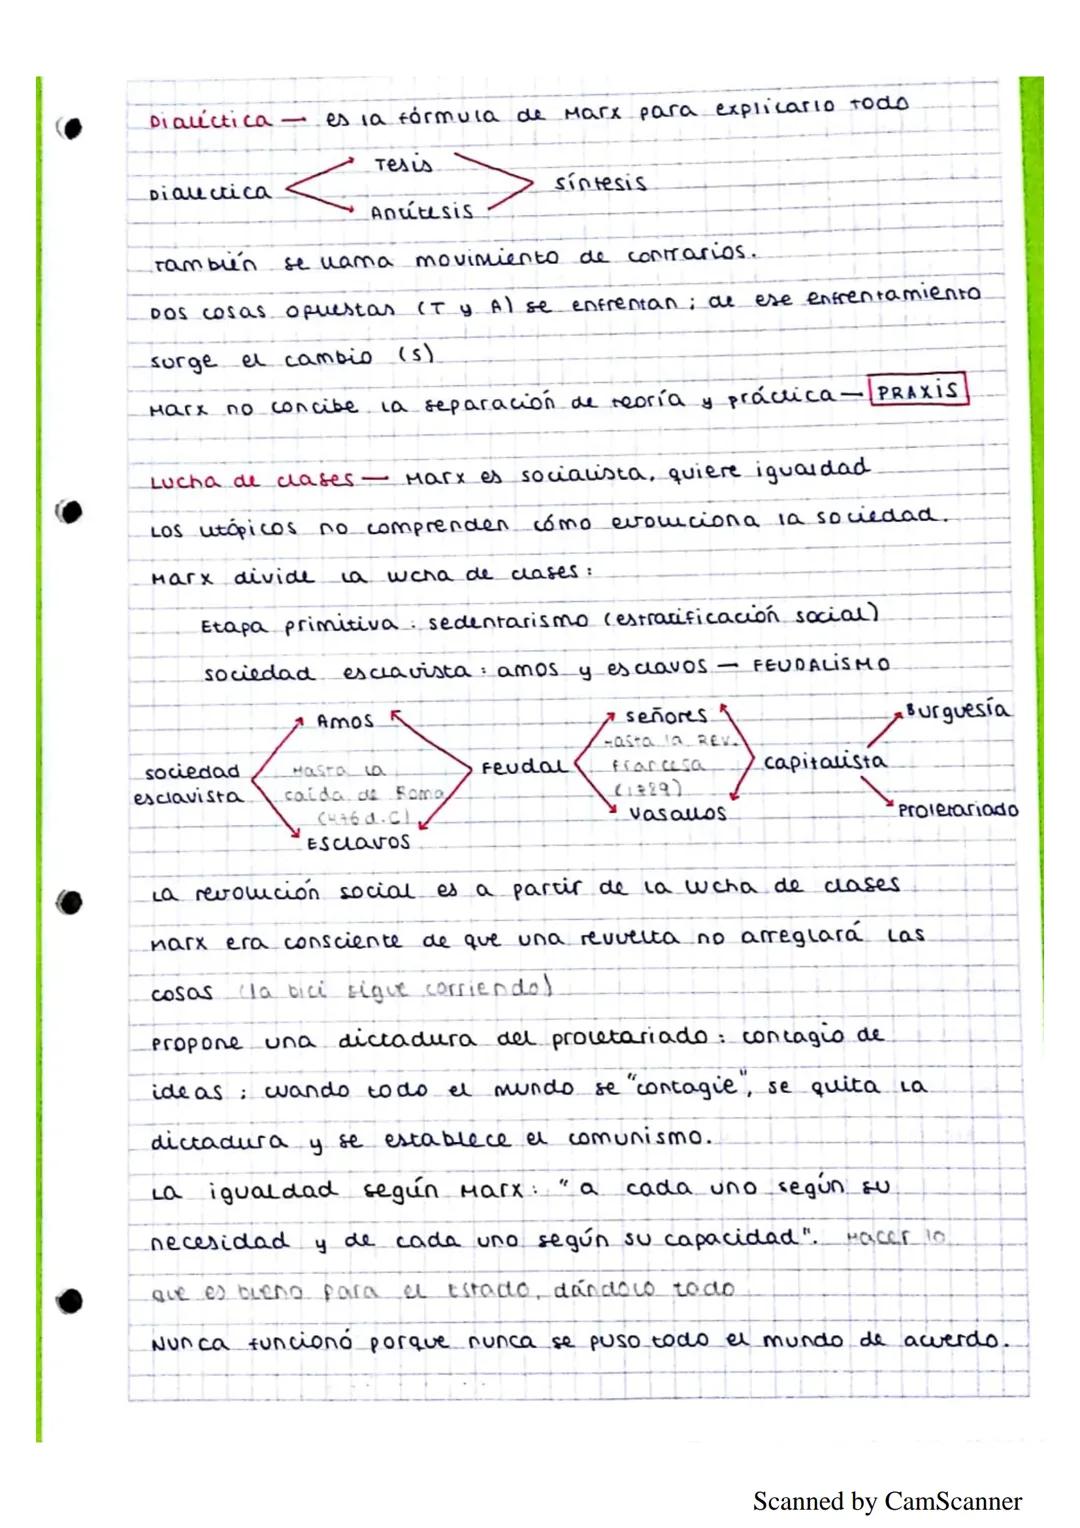 Dialéctica — es la fórmula de Marx para explicarlo todo
Tesis
Dialectica
síntesis
Antítesis
También se llama movimiento de contrarios.
Dos cosas opuestas (T y A) se enfrentan; de ese enfrentamiento
surge el cambio (S)
Marx no concibe la separación de teoría y práctica — PRAXIS
Lucha de clases — Marx es socialista, quiere igualdad
Los utópicos no comprenden cómo evoluciona la sociedad.
Marx divide la lucha de clases:
Etapa primitiva: sedentarismo (estratificación social)
sociedad esclavista: amos y esclavos — FEUDALISMO
Amos
señores
Burguesía
Hasta la Rev.
sociedad
esclavista
Hasta la
caída de Roma
(476 d.C)
Feudal
Francesa
(1789)
capitalista
Esclavos
vasallos
Proletariado
La revolución social es a partir de la lucha de clases
Marx era consciente de que una revuelta no arreglará las
cosas (la bici sigue corriendo)
Propone una dictadura del proletariado: contagio de
ideas; cuando todo el mundo se "contagie", se quita la
dictadura y se establece el comunismo.
La igualdad según Marx: "a cada uno según su
necesidad y de cada uno según su capacidad". Hacer lo
que es bueno para el Estado, dándolo todo
Nunca funcionó porque nunca se puso todo el mundo de acuerdo.
Scanned by CamScanner